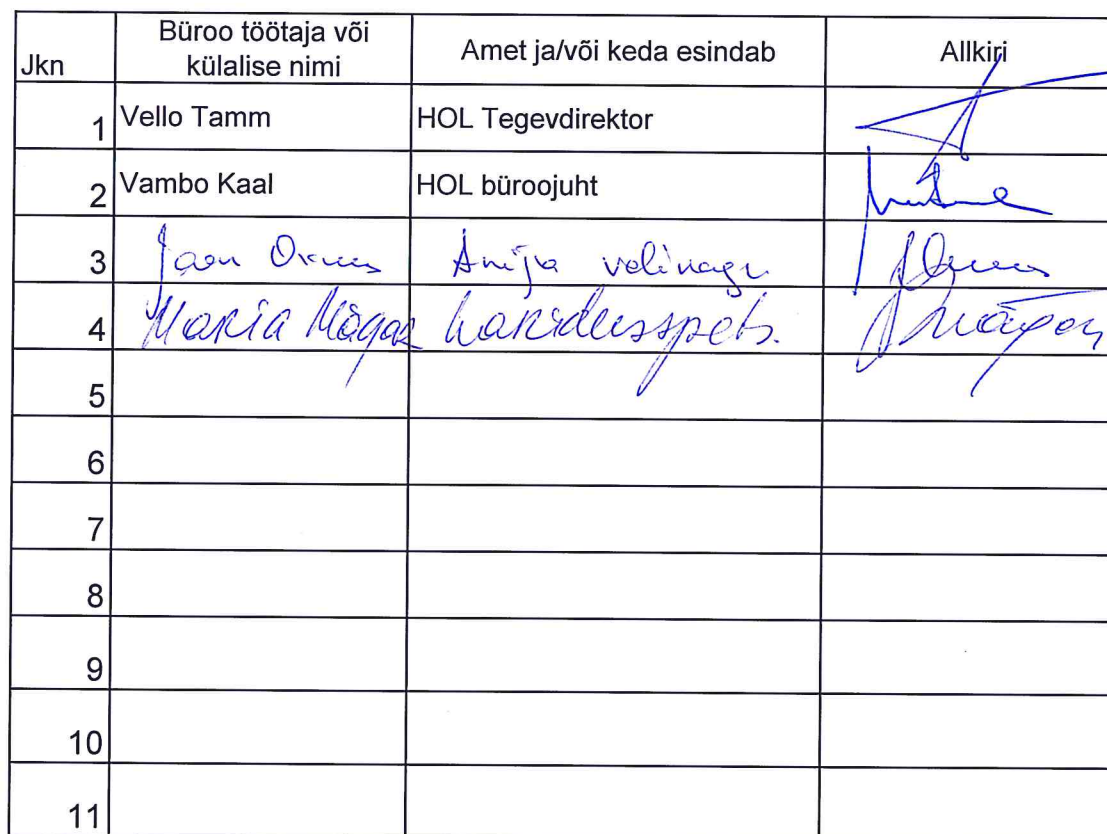 Jkn Büroo töötaja või külalise nimi Amet ja/või keda esindab Allkiri
1 Vello Tamm HOL Tegevdirektor
2 Vambo Kaal HOL büroojuht
3 Jaan Anija
4 Maria Mägar haridusspets.
5
6
7
8
9
10
11